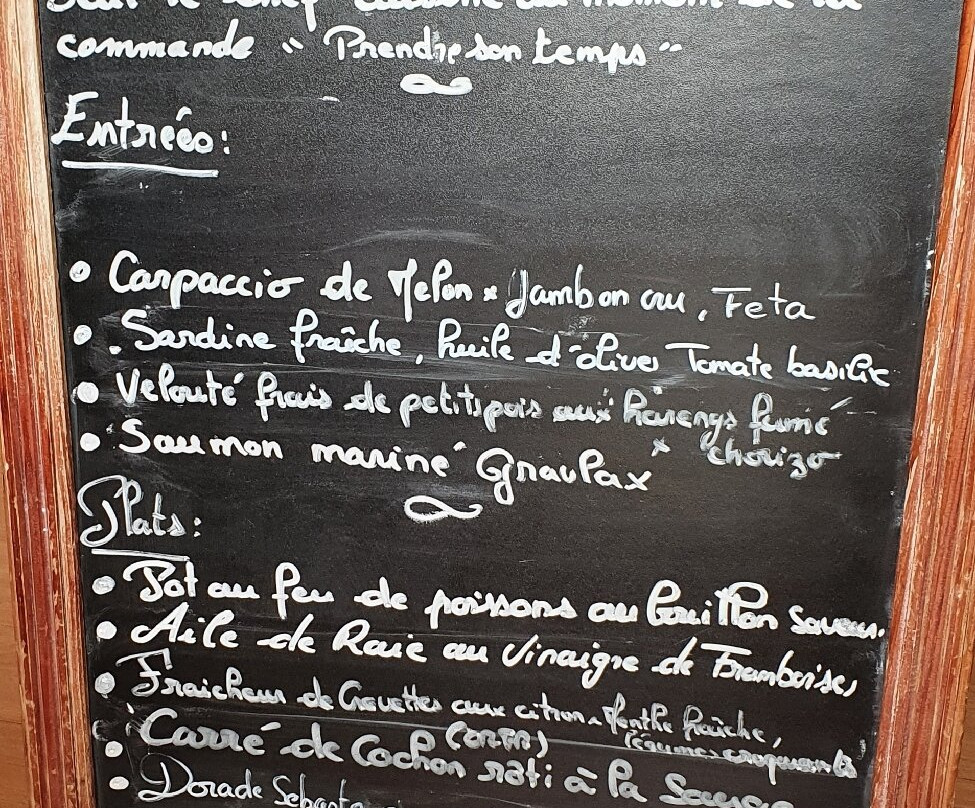 Seul le Chef cuisine au moment de la
commande " Prendre son temps "
Entrées:
• Carpaccio de Melon x Jambon cru, Feta
• Sardine fraîche, huile d'olives Tomate basilic
• Velouté frais de petits pois aux harengs fumé
x chorizo
• Saumon mariné Gravlax
Plats:
• Pot au feu de poissons au bouillon Saveur.
• Aile de Raie au Vinaigre de Framboises
• Fraicheur de Crevettes aux citron x Menthe fraîche,
légumes croquants
• Carré de Cochon rôti à la
• Dorade